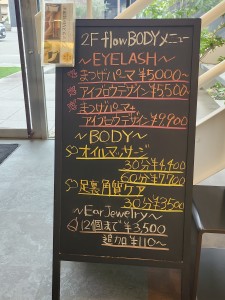 2F flowBODYメニュー
～EYELASH～
まつげパーマ ¥5000～
アイブロウデザイン¥5500
まつげパーマ+
アイブロウデザイン¥9900
～BODY～
オイルマッサージ
30分¥4,400
60分¥7,700
足裏角質ケア
30分¥3500
～Ear Jewelry～
12個まで¥3,500
追加¥110～